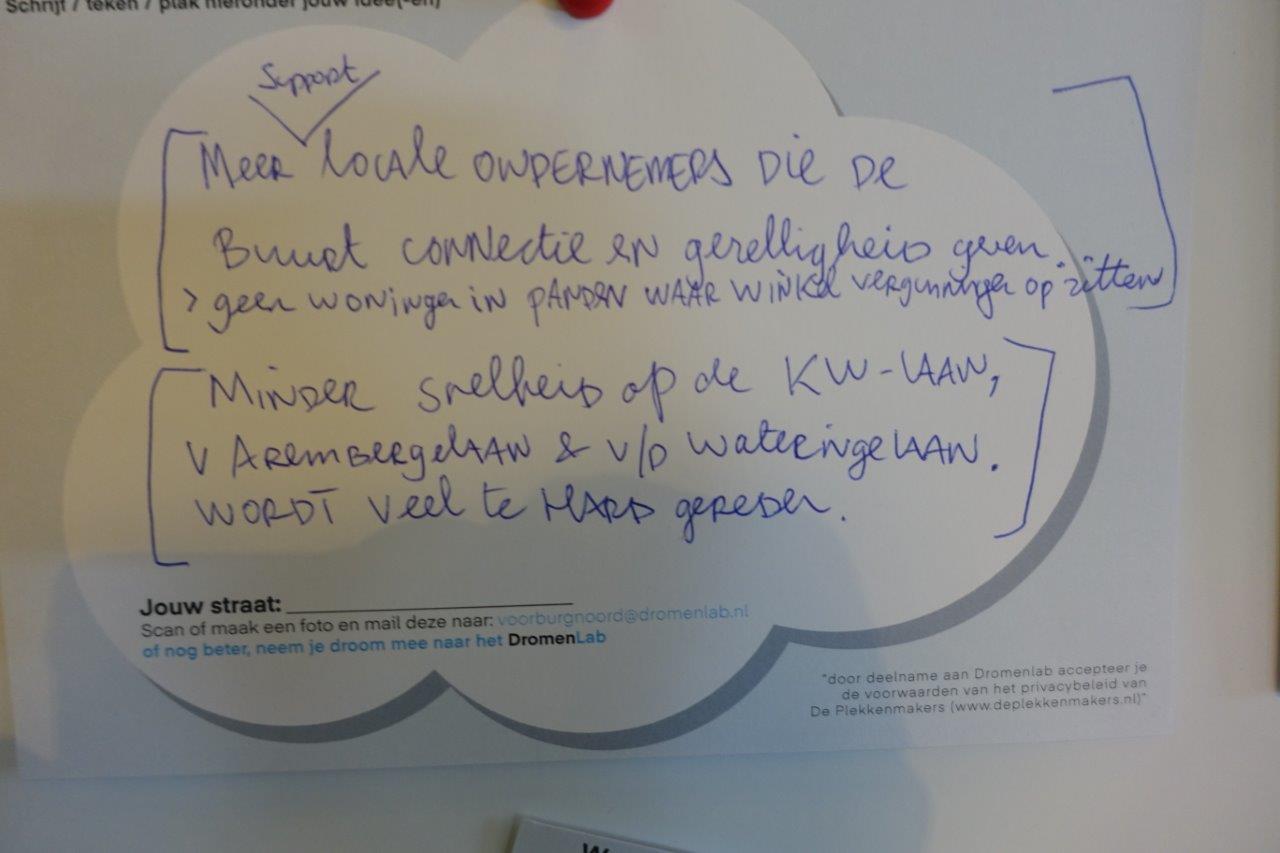 Schrijf / teken / plak hieronder jouw idee(-en)
Support
Meer locale ondernemers die de
Buurt connectie en gezelligheid geven.
> geen woningen in panden waar winkel vergunningen op zitten
Minder snelheid op de KW-laan,
v Arembergelaan & v/d Wateringelaan.
Wordt veel te hard gereden.
Jouw straat:
Scan of maak een foto en mail deze naar: voorburgnoord@dromenlab.nl
of nog beter, neem je droom mee naar het DromenLab
"door deelname aan Dromenlab accepteer je
de voorwaarden van het privacybeleid van
De Plekkenmakers (www.deplekkenmakers.nl)"